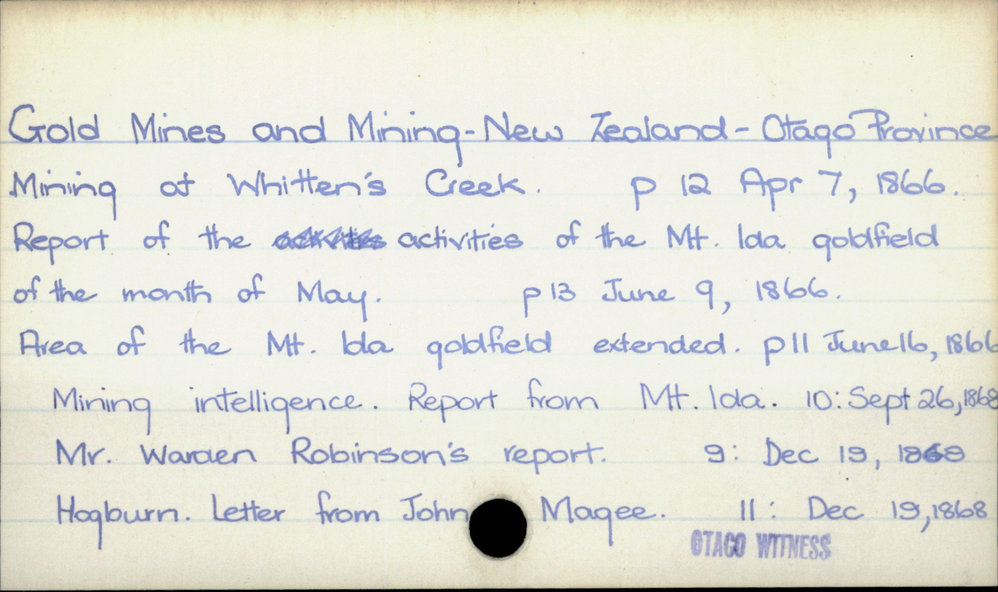 Gold Mines and Mining - New Zealand - Otago Province
Mining at Whitten's Creek. p 12 Apr 7, 1866.
Report of the activities of the Mt. Ida goldfield
of the month of May. p 13 June 9, 1866.
Area of the Mt. Ida goldfield extended. p 11 June 16, 1866
Mining intelligence. Report from Mt. Ida. 10: Sept 26, 1868
Mr. Warden Robinson's report. 9: Dec 19, 1868
Hogburn. Letter from John Magee. 11: Dec 19, 1868
OTAGO WITNESS